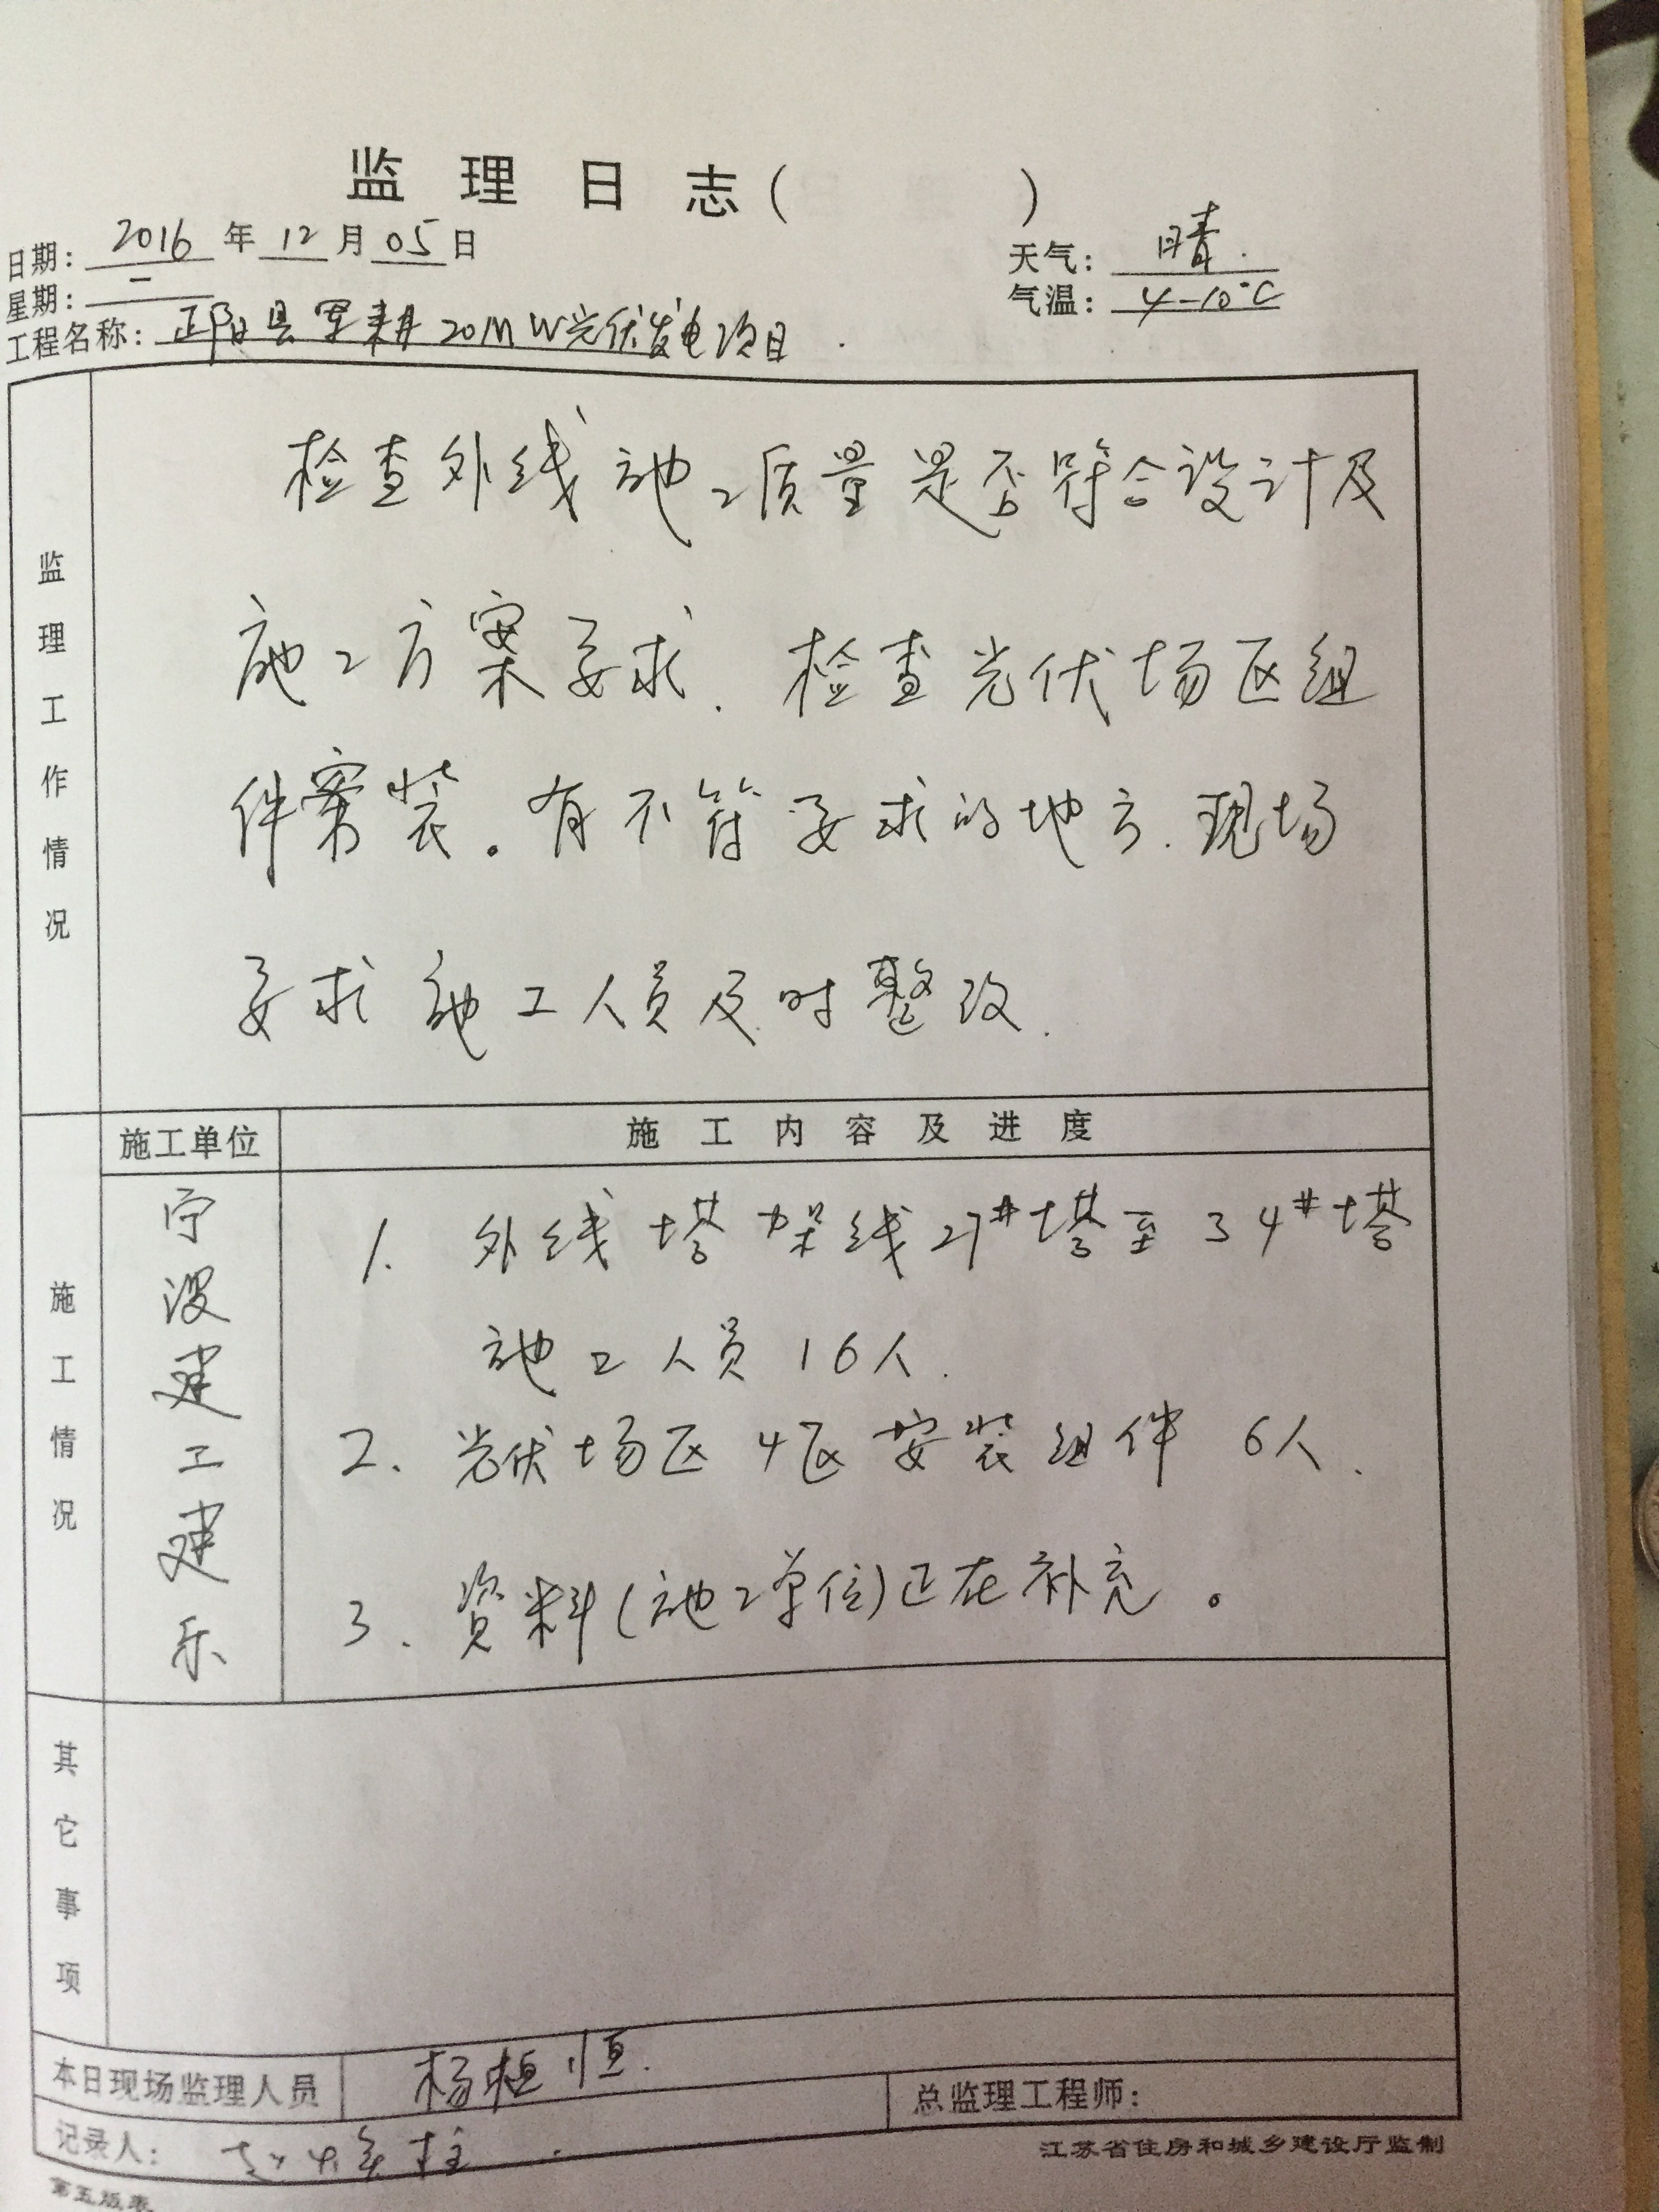 监理日志( )
日期: 2016 年 12 月 05 日
天气: 晴.
星期: 一
气温: 4-10℃
工程名称: 县军耕20MW光伏发电项目.
监理工作情况
检查外线施工质量是否符合设计及
施工方案要求. 检查光伏场区组
件安装。有不符要求的地方.现场
要求施工人员及时整改.
施工情况
施工单位
施工内容及进度
宁波建工建乐
1. 外线塔架线27#塔至34#塔
施工人员16人.
2. 光伏场区4区安装组件 6人.
3. 资料(施工单位)正在补充。
其它事项
本日现场监理人员
杨恒.
记录人:
总监理工程师:
江苏省住房和城乡建设厅监制
第五版表